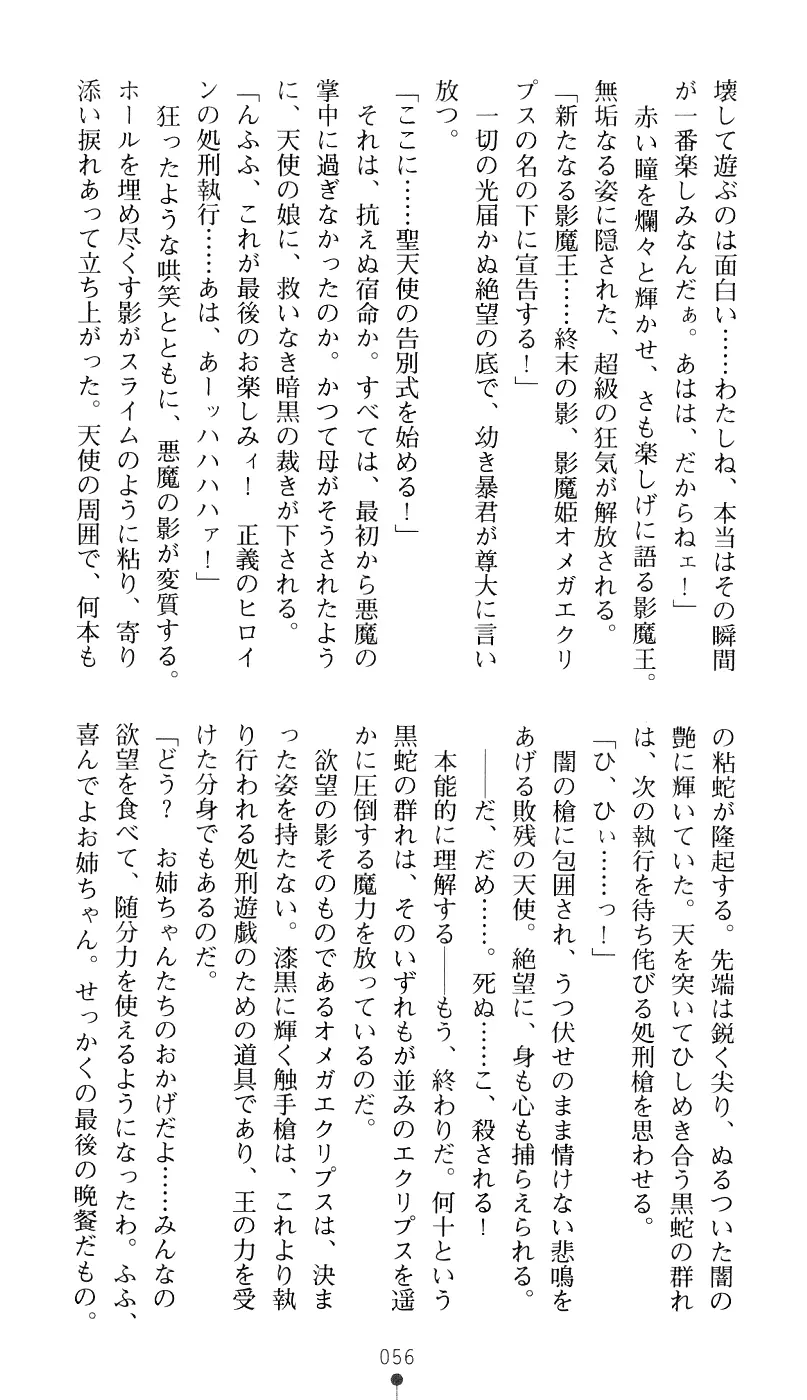 壊して遊ぶのは面白い……わたしね、本当はその瞬間
が一番楽しみなんだぁ。あはは、だからねェ！」
　赤い瞳を爛々と輝かせ、さも楽しげに語る影魔王。
無垢なる姿に隠された、超級の狂気が解放される。
「新たなる影魔王……終末の影、影魔姫オメガエクリ
プスの名の下に宣告する！」
　一切の光届かぬ絶望の底で、幼き暴君が尊大に言い
放つ。
「ここに……聖天使の告別式を始める！」
　それは、抗えぬ宿命か。すべては、最初から悪魔の
掌中に過ぎなかったのか。かつて母がそうされたよう
に、天使の娘に、救いなき暗黒の裁きが下される。
「んふふ、これが最後のお楽しみィ！　正義のヒロイ
ンの処刑執行……あは、あーッハハハハァ！」
　狂ったような哄笑とともに、悪魔の影が変質する。
ホールを埋め尽くす影がスライムのように粘り、寄り
添い捩れあって立ち上がった。天使の周囲で、何本も
の粘蛇が隆起する。先端は鋭く尖り、ぬるついた闇の
艶に輝いていた。天を突いてひしめき合う黒蛇の群れ
は、次の執行を待ち侘びる処刑槍を思わせる。
「ひ、ひぃ……っ！」
　闇の槍に包囲され、うつ伏せのまま情けない悲鳴を
あげる敗残の天使。絶望に、身も心も捕らえられる。
　――だ、だめ……。死ぬ……こ、殺される！
　本能的に理解する――もう、終わりだ。何十という
黒蛇の群れは、そのいずれもが並みのエクリプスを遥
かに圧倒する魔力を放っているのだ。
　欲望の影そのものであるオメガエクリプスは、決ま
った姿を持たない。漆黒に輝く触手槍は、これより執
り行われる処刑遊戯のための道具であり、王の力を受
けた分身でもあるのだ。
「どう？　お姉ちゃんたちのおかげだよ……みんなの
欲望を食べて、随分力を使えるようになったわ。ふふ、
喜んでよお姉ちゃん。せっかくの最後の晩餐だもの。
056